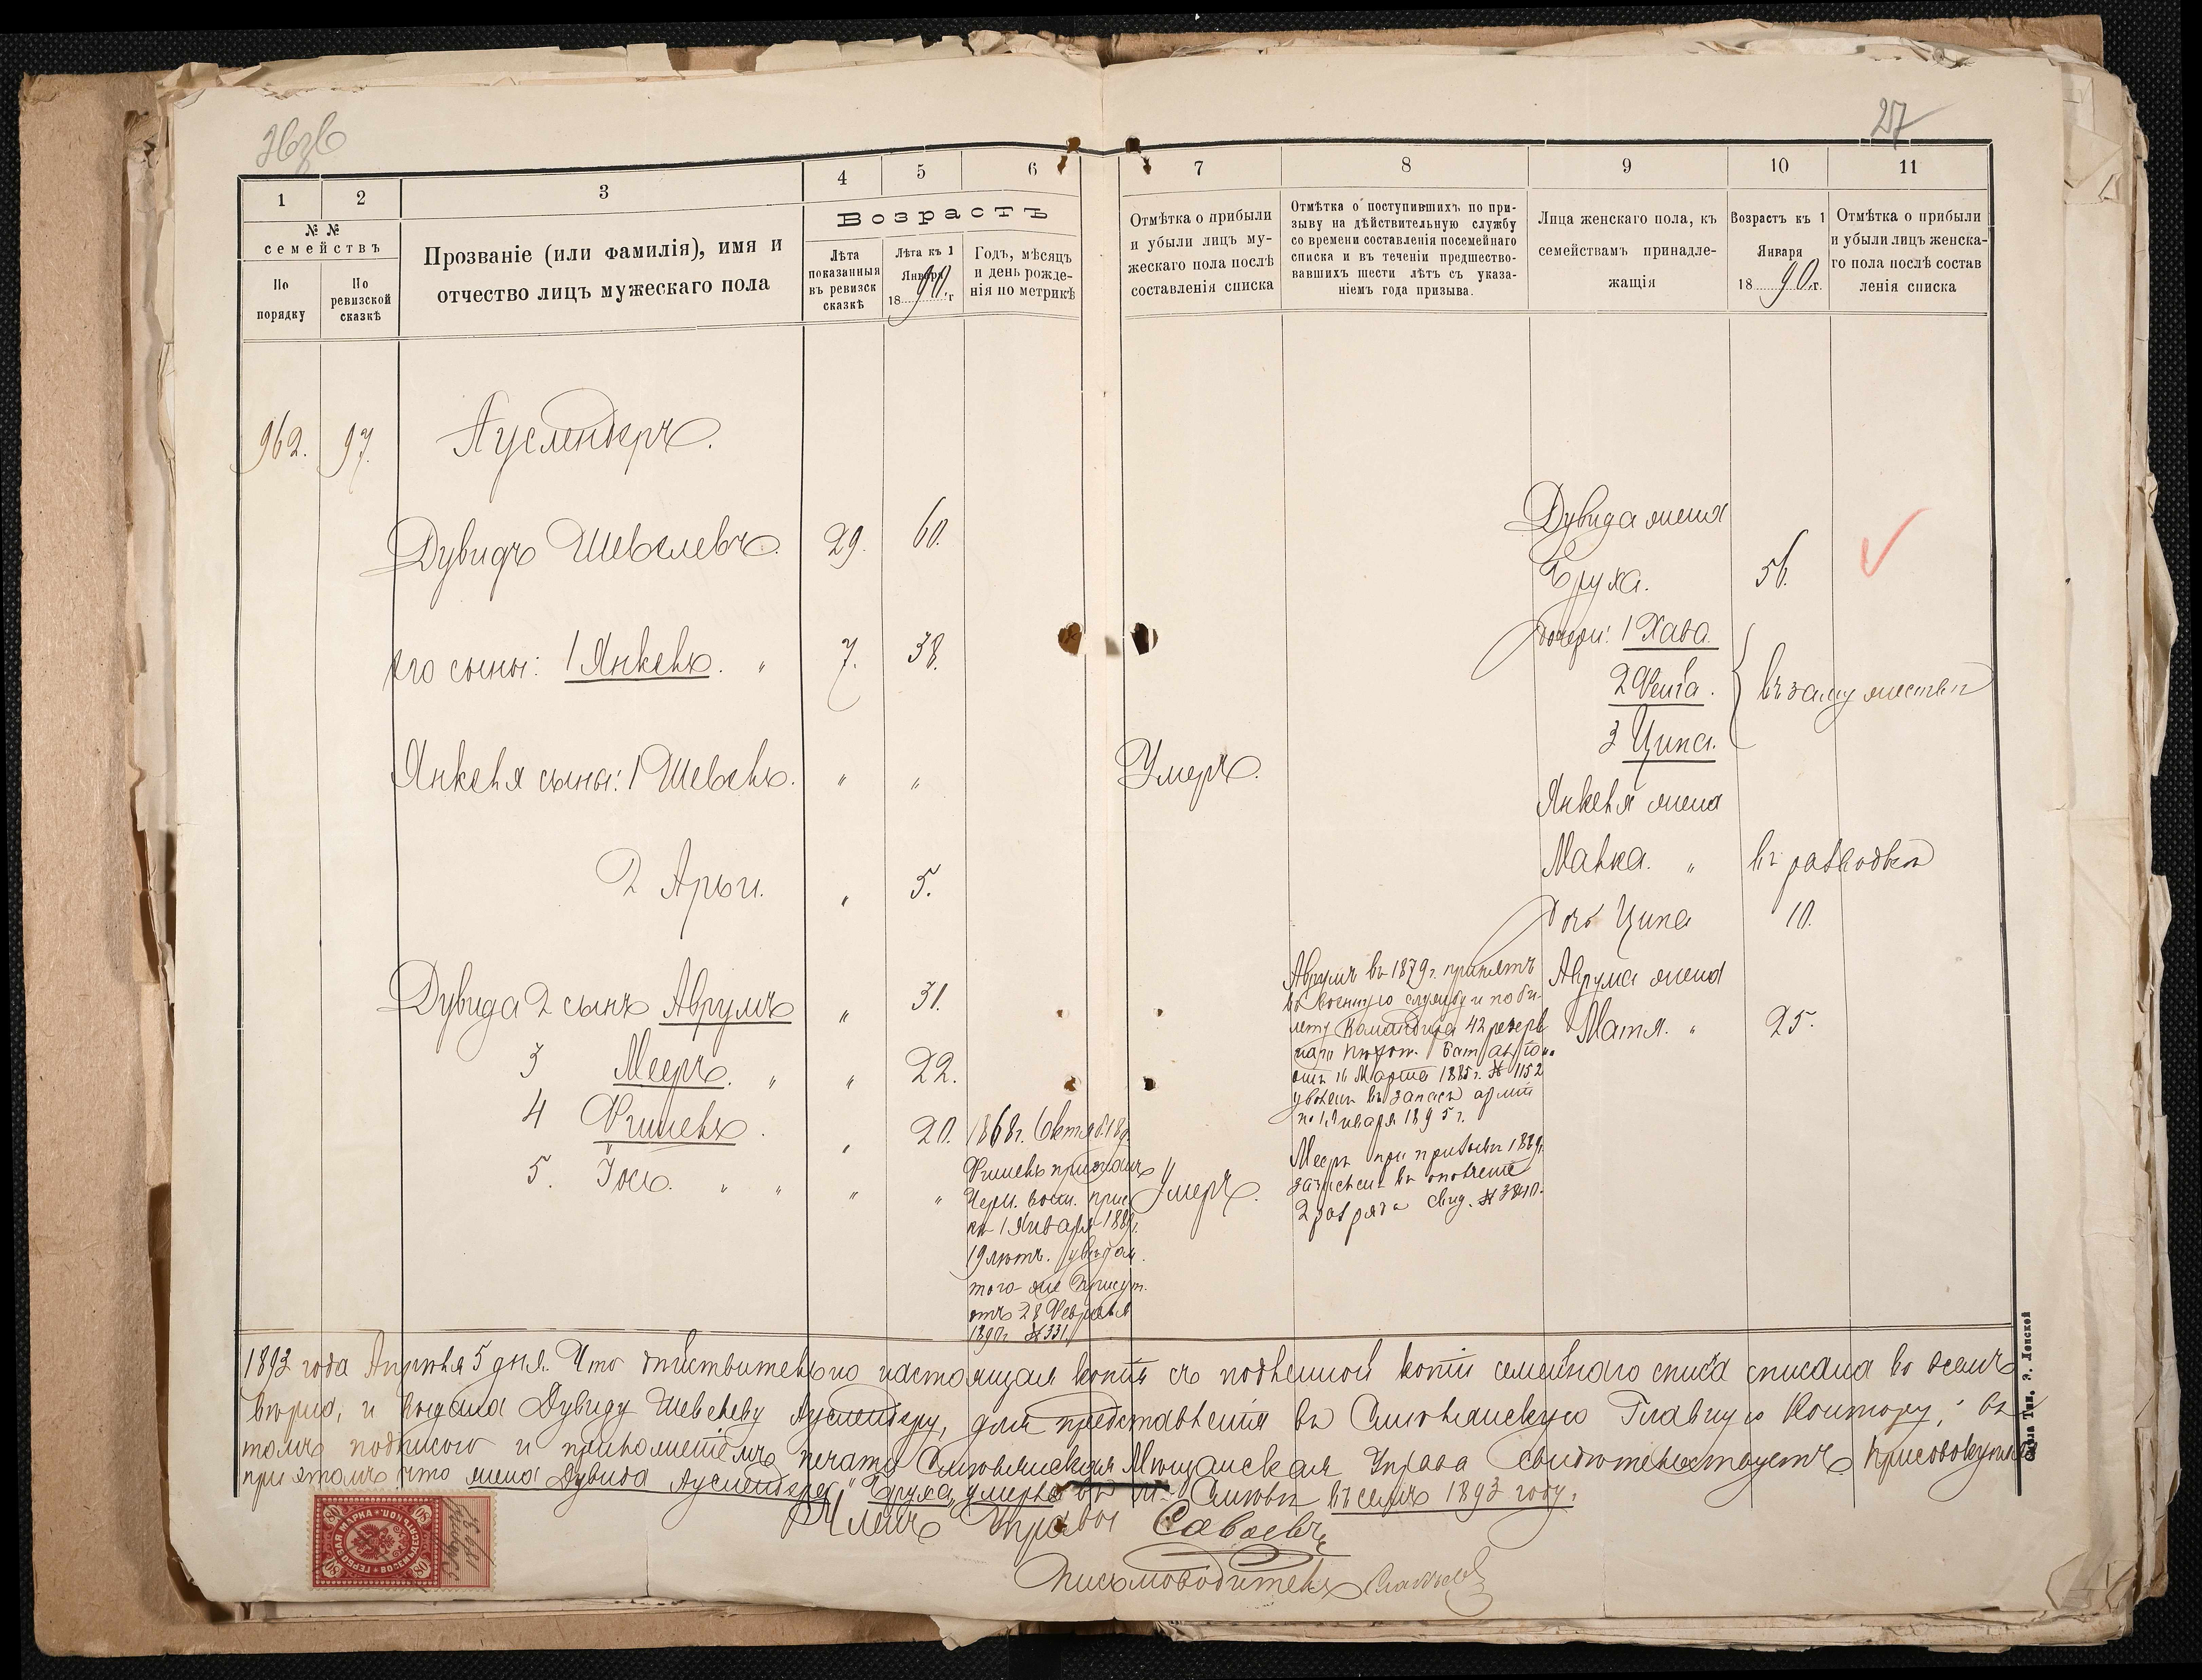 27
1
2
3
4
5
6
7
8
9
10
11
№ №
семействъ
По
порядку
По
ревизской
сказкѣ
Прозваніе (или фамилія), имя и
отчество лицъ мужескаго пола
Возрастъ
Лѣта
показанныя
въ ревизск
сказкѣ
Лѣта къ 1
Января
1890 г
Годъ, мѣсяцъ
и день рожде-
нія по метрикѣ
Отмѣтка о прибыли
и убыли лицъ му-
жескаго пола послѣ
составленія списка
Отмѣтка о поступившихъ по при-
зыву на дѣйствительную службу
со времени составленія посемейнаго
списка и въ теченіи предшество-
вавшихъ шести лѣтъ съ указа-
ніемъ года призыва.
Лица женскаго пола, къ
семействамъ принадле-
жащія
Возрастъ къ 1
Января
1890 г.
Отмѣтка о прибыли
и убыли лицъ женска-
го пола послѣ состав
ленія списка
962. 97. Ауслендеръ.
Дувидъ Шевелевъ. 29. 60.
Дувида жена
Бруха. 56.
его сыны: 1 Янкель. " 7. 38.
дочери: 1 Хава.
2 Фейга.
3 Ципа.
въ замужествѣ
Янкеля сыны: 1 Шевель. " " Умеръ.
Янкеля жена
Малка. " въ разводѣ
2 Арьи. " 5.
дочь Ципа 10.
Дувида 2 сынъ Аврумъ " 31.
Аврумъ въ 1879 г. принятъ
въ военную службу и по би-
лету Командира 42 резерв
наго пѣхот. баталіона
отъ 16 Марта 1885 г. № 1152
уволенъ въ запасъ арміи
по 1 Января 1895 г.
Аврума жена
Матля. " 25.
3 Мееръ. " " 22.
Мееръ при призывѣ 1889 г.
зачисленъ въ ополченіе
2 разряда свид. № 3840.
4 Фишель. " 20. 1868 г. Октяб. 18 д.
Фишель признанъ
Черн. воин. прис
къ 1 Января 1889 г.
19 лѣтъ.
того-же Присут.
отъ 28 Февраля
1890 г № 331
5. Іось. " " " " Умеръ.
1893 года Апрѣля 5 дня. Что дѣйствительно настоящая копія съ подленной копіи семейнаго списка списана во всемъ
вѣрно, и выдана Дувиду Шевелеву Ауслендеру, для представленія въ Смѣлянскую Главную Контору, въ
томъ подписью и приложеніемъ печати Смѣлянская Мѣщанская Управа свидѣтельствуетъ, присовокупляя
при этомъ что жена Дувида Ауслендера "Бруха" умерла въ м. Смѣлѣ въ семъ 1893 году.
Членъ Управы
Письмоводитель
ГЕРБОВАЯ МАРКА
80
Смѣла Тип. Э. Ленской